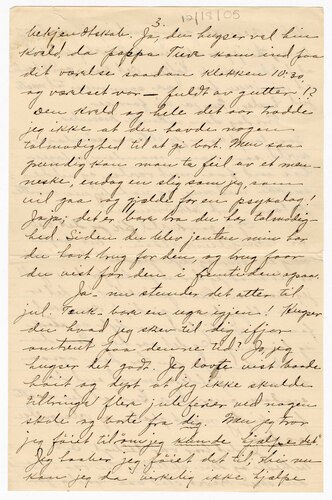 3.
12/18/05
bekjendtskab. Ja, du husger vel hin
kveld, da pappa Turk kom ind paa
dit værelse saadan klokken 10:30,
og værelset var — fuldt av gutter!?
Den kveld og hele det aar trodde
jeg ikke at du havde nogen
talmodighed til at gi bort. Men saa
grundig kan man ta feil av et men-
neske, endog en slig som jeg, som
vil gaa og gjælde for en psykolog!
Jaja; det er bare bra du har talmodig-
hed. Siden du blev jenten min har
du havt brug for den, og brug faar
du vist for den i fremtiden ogsaa.
Ja — nu stunder det atter til
jul. Tænk — bare en uga igjen! Husger
du hvad jeg skrev til dig ifjor
omtrent paa denne tid? Jo, jeg
husger det godt. Jeg lovte vist baade
høit og dyrt at jeg ikke skulde
tilbringe flere juleferier ved nogen
skole og borte fra dig. Men jeg tror
jeg føiet til: "om jeg kunde hjælpe det".
Jeg haaber jeg føiet det til, thi nu
kan jeg da virkelig ikke hjælpe